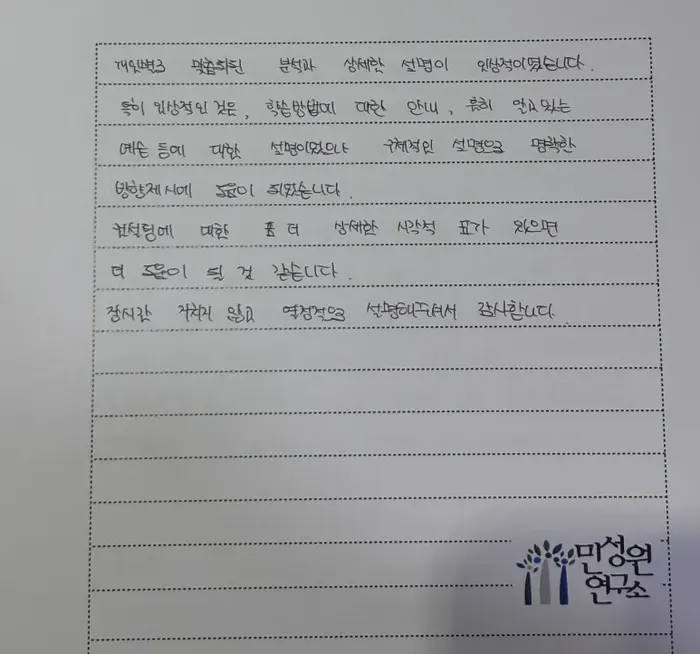 개인별로 맞춤화된 분석과 상세한 설명이 인상적이었습니다.
특히 인상적인 것은, 학습방법에 대한 안내, 특히 알고 있는
예습 등에 대한 설명이었으나 구체적인 설명으로 명확한
방향제시에 도움이 되었습니다.
컨설팅에 대한 좀 더 상세한 시각적 표가 있으면
더 도움이 될 것 같습니다.
장시간 지치지 않고 열정적으로 설명해주셔서 감사합니다.
민성원
연구소